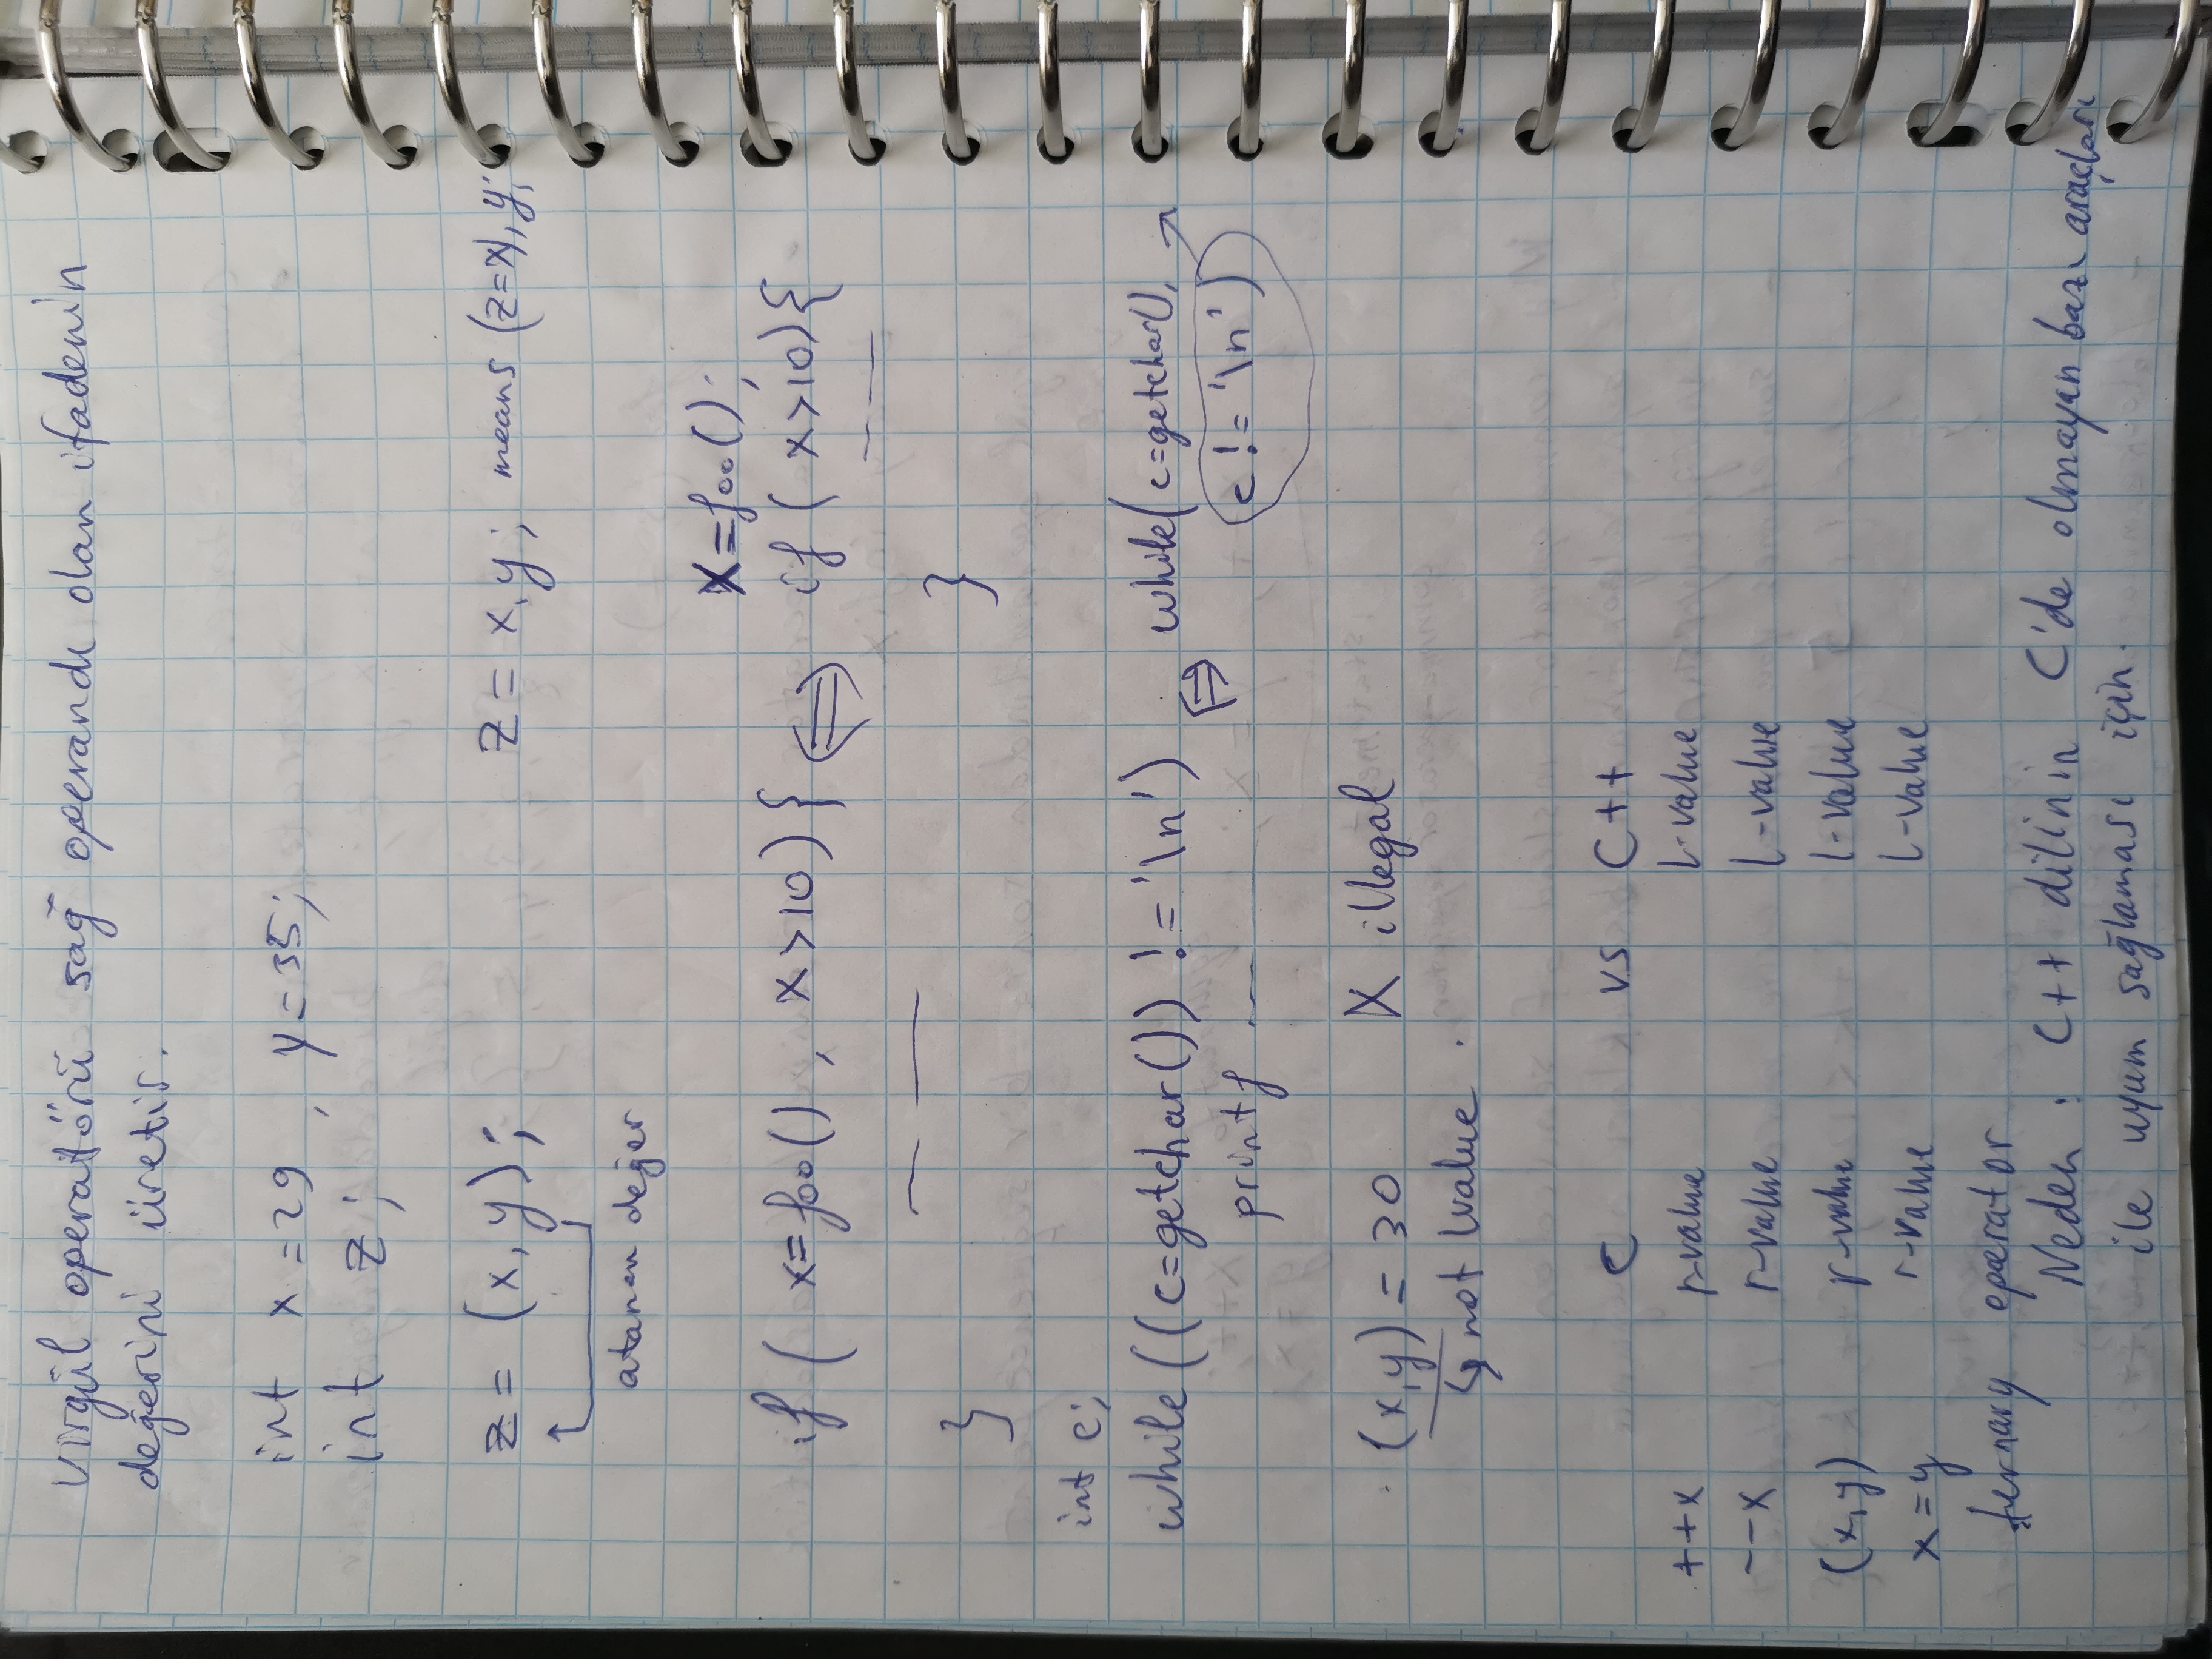 Virgül operatörü sağ operandı olan ifadenin
değerini üretir.
int x = 29 , y = 35;
int z;
z = (x, y);
z = x, y; means (z=x), y;
atanan değer
x = foo();
if ( x = foo() , x > 10 ) { ⇔ if ( x > 10) {
} }
int c;
while ((c = getchar()) != '\n') ⇔ while( c = getchar(),
printf c != '\n')
(x, y) = 30 X illegal
↳ not lvalue
C vs C++
++x r-value L-value
--x r-value L-value
(x, y) r-value l-value
x = y r-value L-value
ternary operator
Neden : C++ dilinin C'de olmayan bazı araçları
ile uyum sağlaması için.